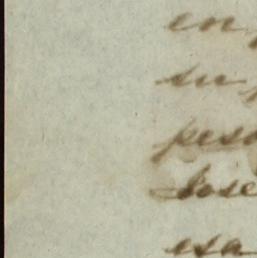 en
su
peso
José
esa